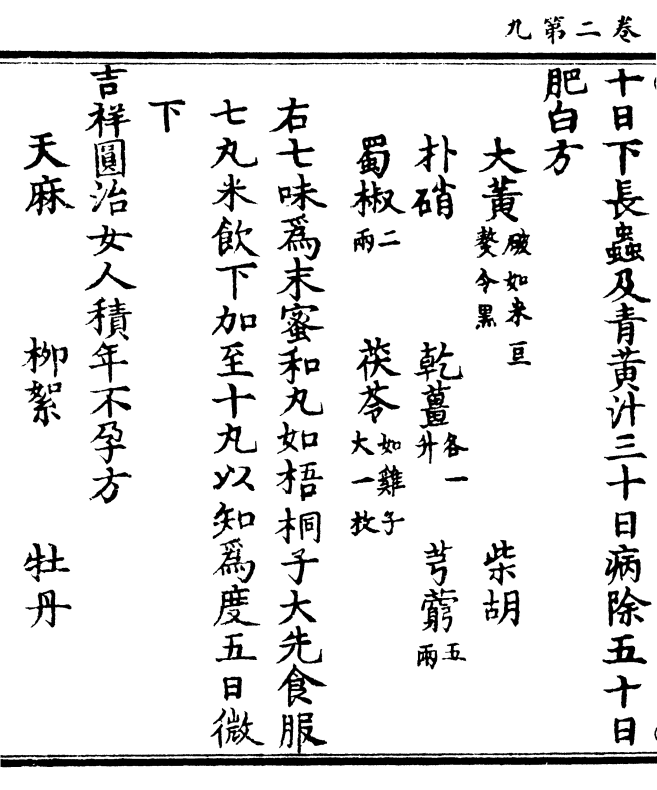 卷二第九
十日下長蟲及青黃汁三十日病除五十日
肥白方
大黃破如米豆熬令黑 柴胡
朴硝 乾薑各一升 芎藭五兩
蜀椒二兩 茯苓如雞子大一枚
右七味爲末蜜和丸如梧桐子大先食服
七丸米飲下加至十丸以知爲度五日微
下
吉祥圓治女人積年不孕方
天麻 柳絮 牡丹